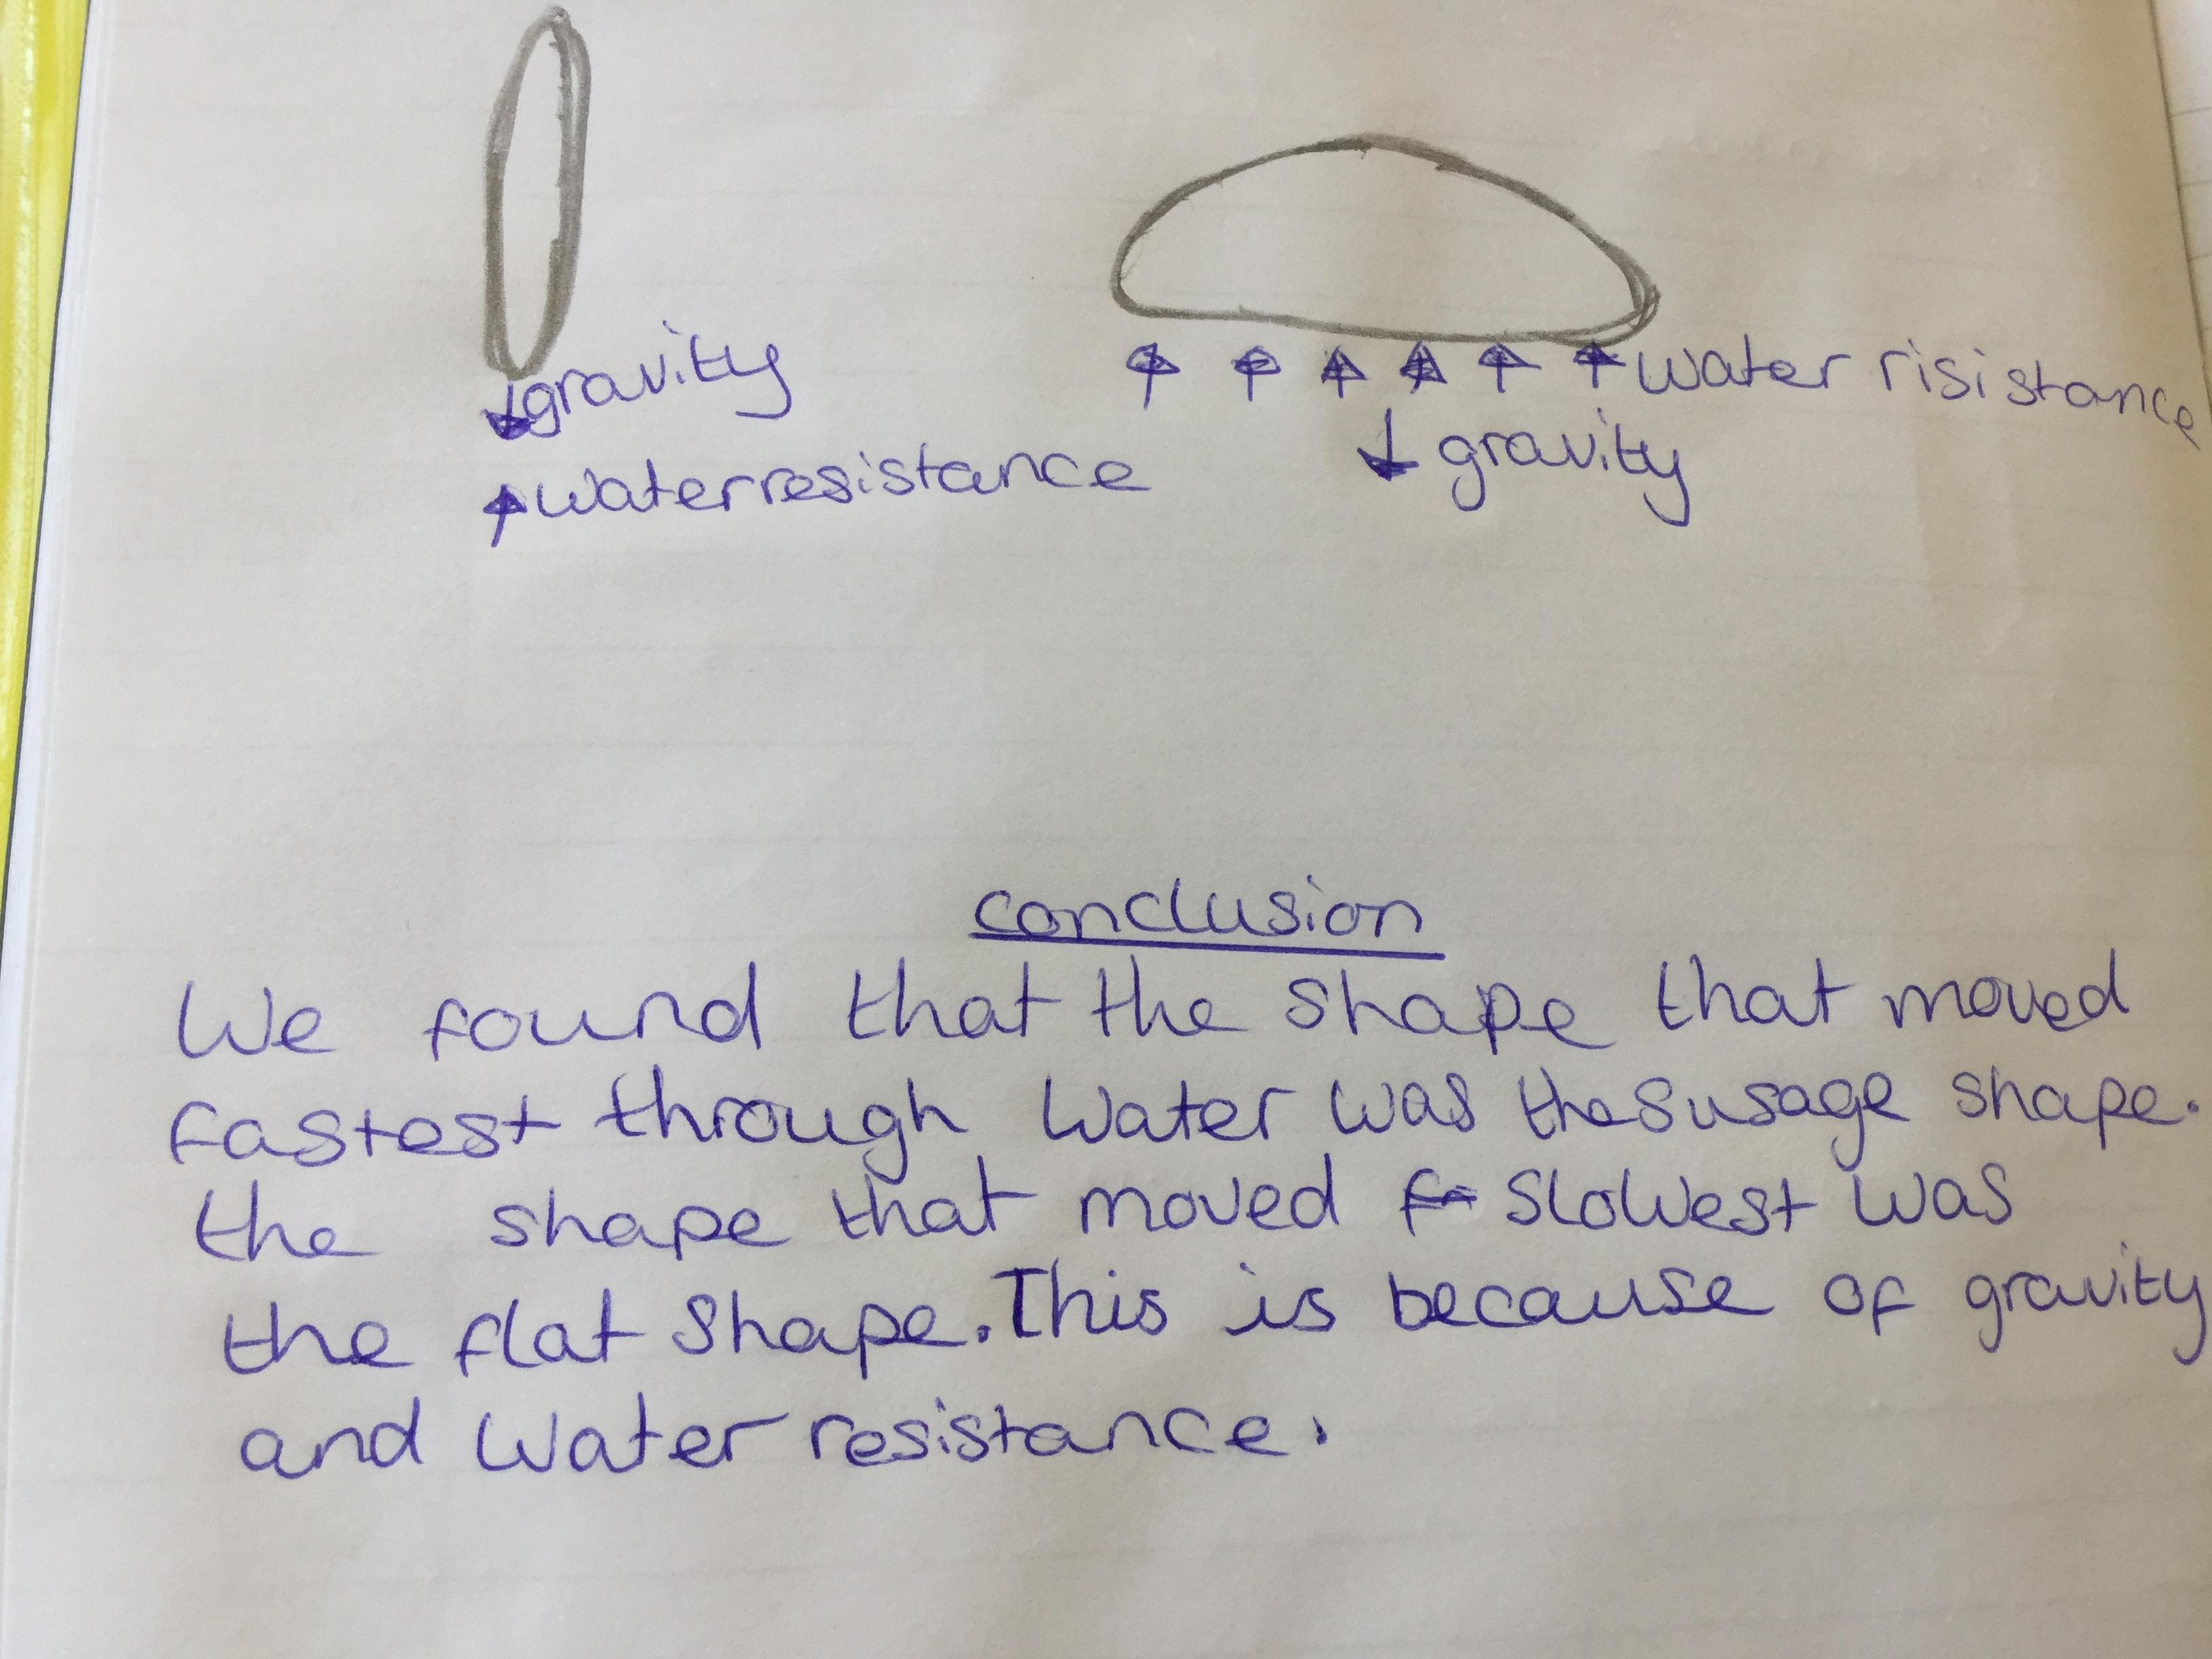 gravity
water resistance
water risistance
gravity
conclusion
We found that the shape that moved
fastest through water was the susage shape.
the shape that moved slowest was
the flat shape. This is because of gravity
and water resistance.